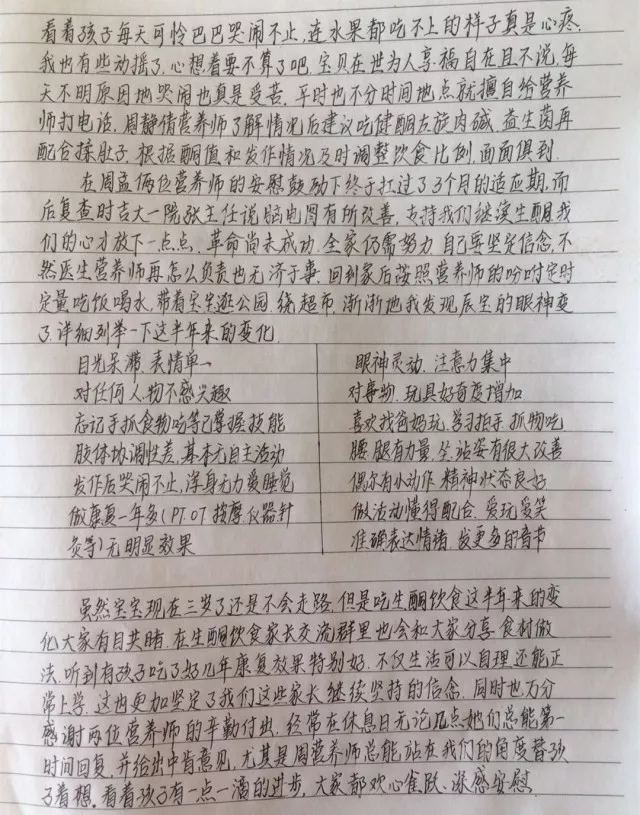 看着孩子每天可怜巴巴哭闹不止,连水果都吃不上的样子真是心疼.
我也有些动摇了,心想着要不算了吧,宝贝在世为人享福自在且不说,每
天不明原因地哭闹也真是受苦.平时也不分时间地点就擅自给营养
师打电话,周静倩营养师了解情况后建议吃健酮左旋肉碱.益生菌再
配合揉肚子.根据酮值和发作情况及时调整饮食比例,面面俱到.
在周孟俩位营养师的安慰鼓励下终于扛过了3个月的适应期,而
后复查时吉大一院张主任说脑电图有所改善,支持我们继续生酮.我
们的心才放下一点点.革命尚未成功.全家仍需努力.自己要坚定信念,不
然医生营养师再怎么负责也无济于事.回到家后按照营养师的吩咐定时
定量吃饭喝水,带着宝宝逛公园.绕超市.渐渐地我发现辰宝的眼神变
了.详细列举一下这半年来的变化.
目光呆滞.表情单一 眼神灵动.注意力集中
对任何人物不感兴趣 对事物.玩具好奇度增加
忘记手抓食物吃等已掌握技能 喜欢找爸妈玩.学习拍手.抓物吃
肢体协调性差,基本无自主活动 腰腿有力量.坐.站姿有很大改善
发作后哭闹不止,浑身无力爱睡觉 偶尔有小动作.精神状态良好
做康复一年多(PT.OT.按摩.仪器.针 做活动懂得配合.爱玩爱笑
灸等)无明显效果 准确表达情绪.发更多的音节
虽然宝宝现在三岁了还是不会走路.但是吃生酮饮食这半年来的变
化大家有目共睹.在生酮饮食家长交流群里也会和大家分享食材做
法.听到有孩子吃了好几年康复效果特别好.不仅生活可以自理还能正
常上学.这也更加坚定了我们这些家长继续坚持的信念.同时也万分
感谢两位营养师的辛勤付出.经常在休息日无论几点她们总能第一
时间回复.并给出中肯意见.尤其是周营养师总能站在我们的角度替孩
子着想.看着孩子有一点一滴的进步,大家都欢心雀跃、深感安慰.